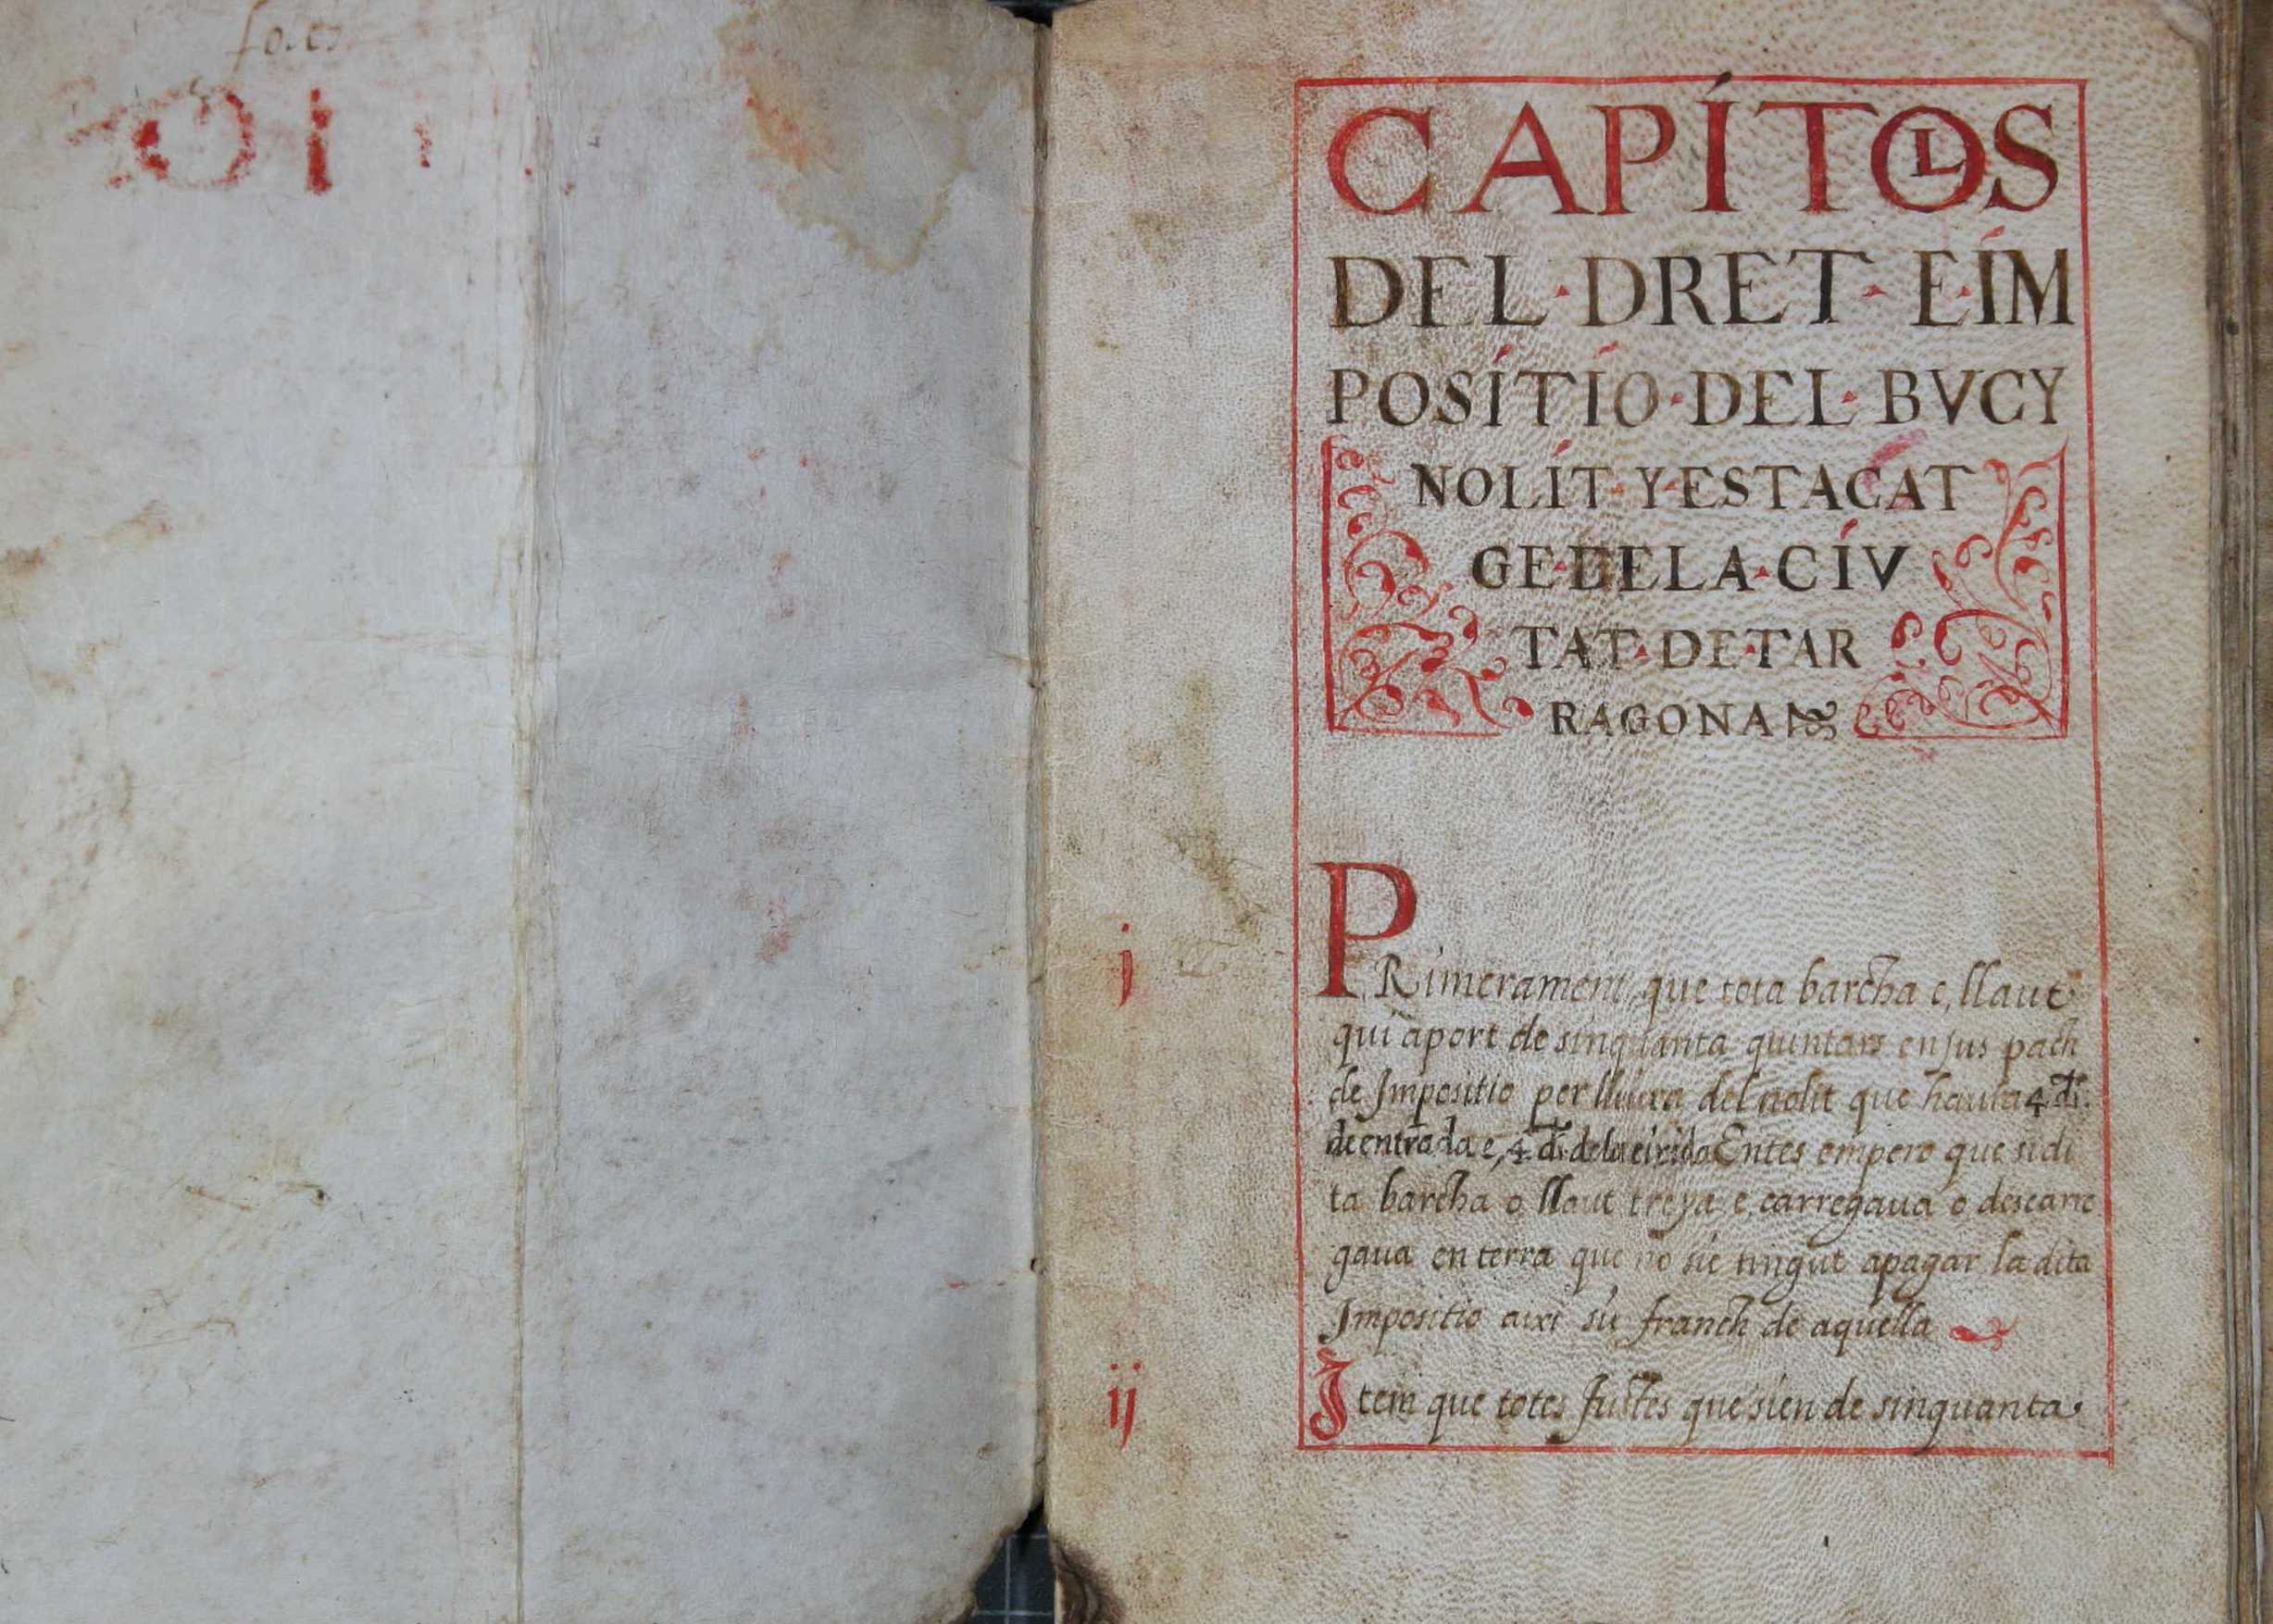 CAPÍTOLS
DEL·DRET·E·ÍM
POSÍTÍO·DEL·BVCY
NOLÍT·Y·ESTACAT
GE·DELA·CÍV
TAT·DE·TAR
RAGONA
j
PRimerament, que tota barcha e, llaut
qui aport de singuanta quintars en jus pach
de Impositio per lliura del nolit que haura 4 di.
de entrada e, 4 di. de la Entes empero que si di
ta barcha o llaut treya e, carregaua o descarre
gaua en terra que no sie tingut apagar la dita
Impositio axi sia franch de aquella
ij
Item que totes fustes que sien de singuanta